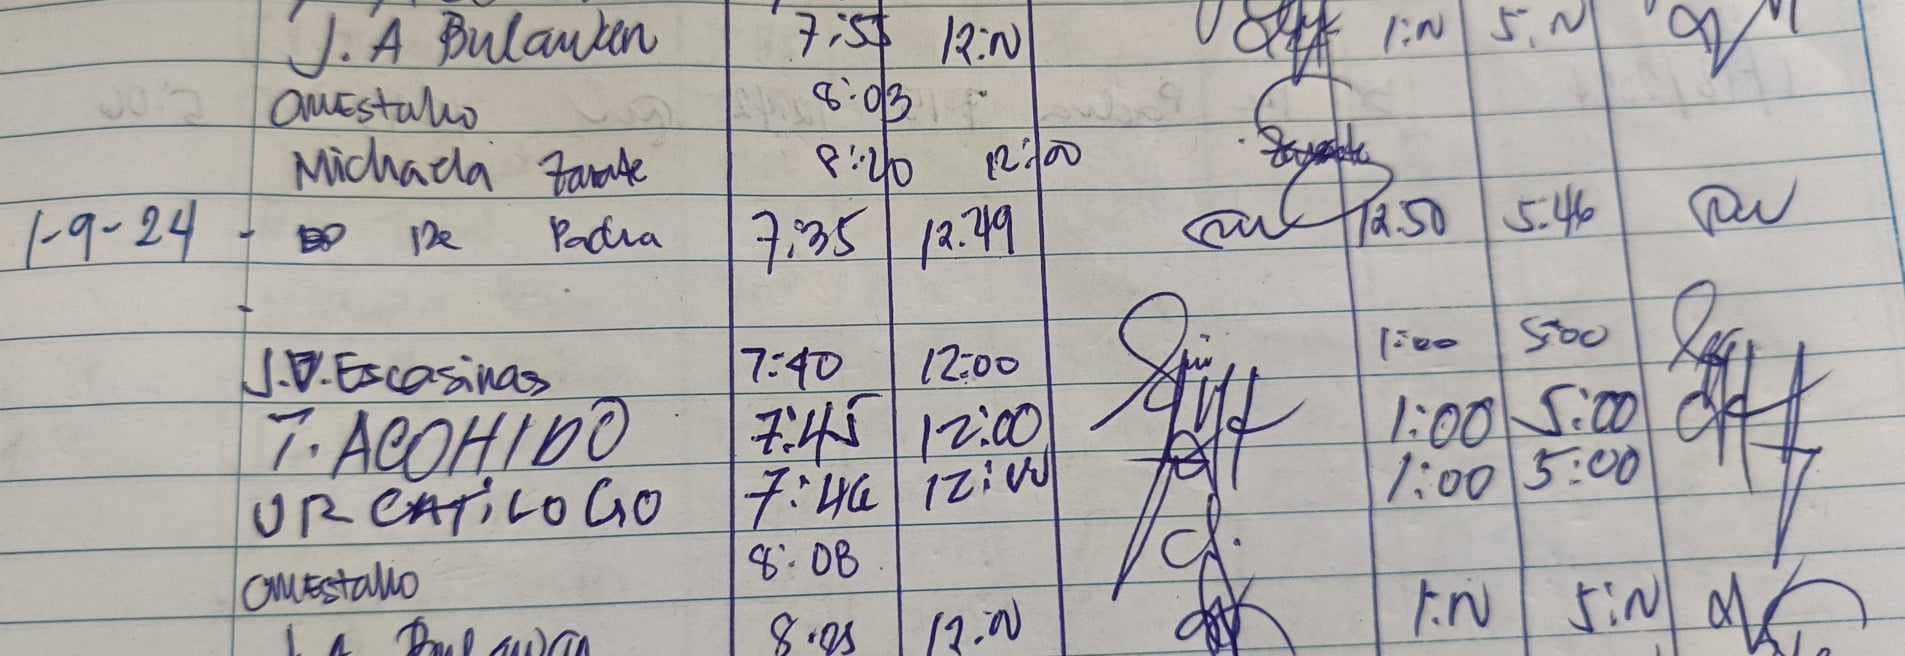 J. A Bulawan 7:55 12:N 1:N 5:N
OMEstalio 8:03
Michaela Zarate 8:20 12:00 Zarate
1-9-24 - De Padua 7:35 12.49 12.50 5.46
-
J.V.Escasinas 7:40 12:00 1:00 5:00
T. ACOHIDO 7:45 12:00 1:00 5:00
JR CATiLOGO 7:46 12:00 1:00 5:00
OMEstalio 8:08
J.A Bulawan 8:05 12:N 1:N 5:N